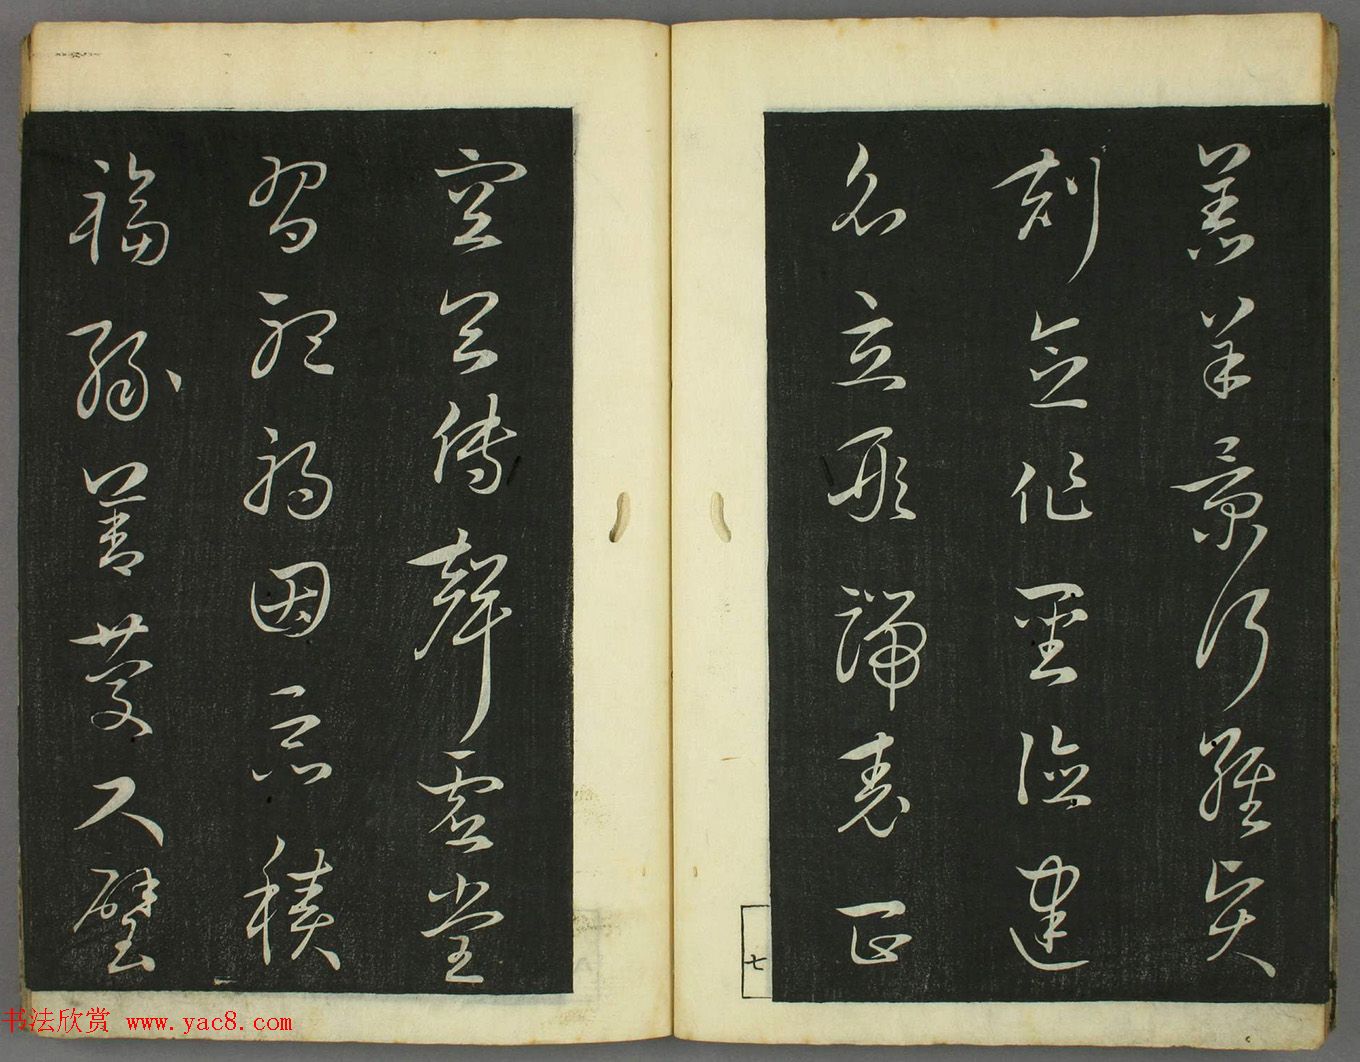 羔羊景行維賢
剋念作聖德建
名立形端表正
七
空谷傳聲虛堂
習聽禍因惡積
福緣善慶尺璧
书法欣赏 www.yac8.com